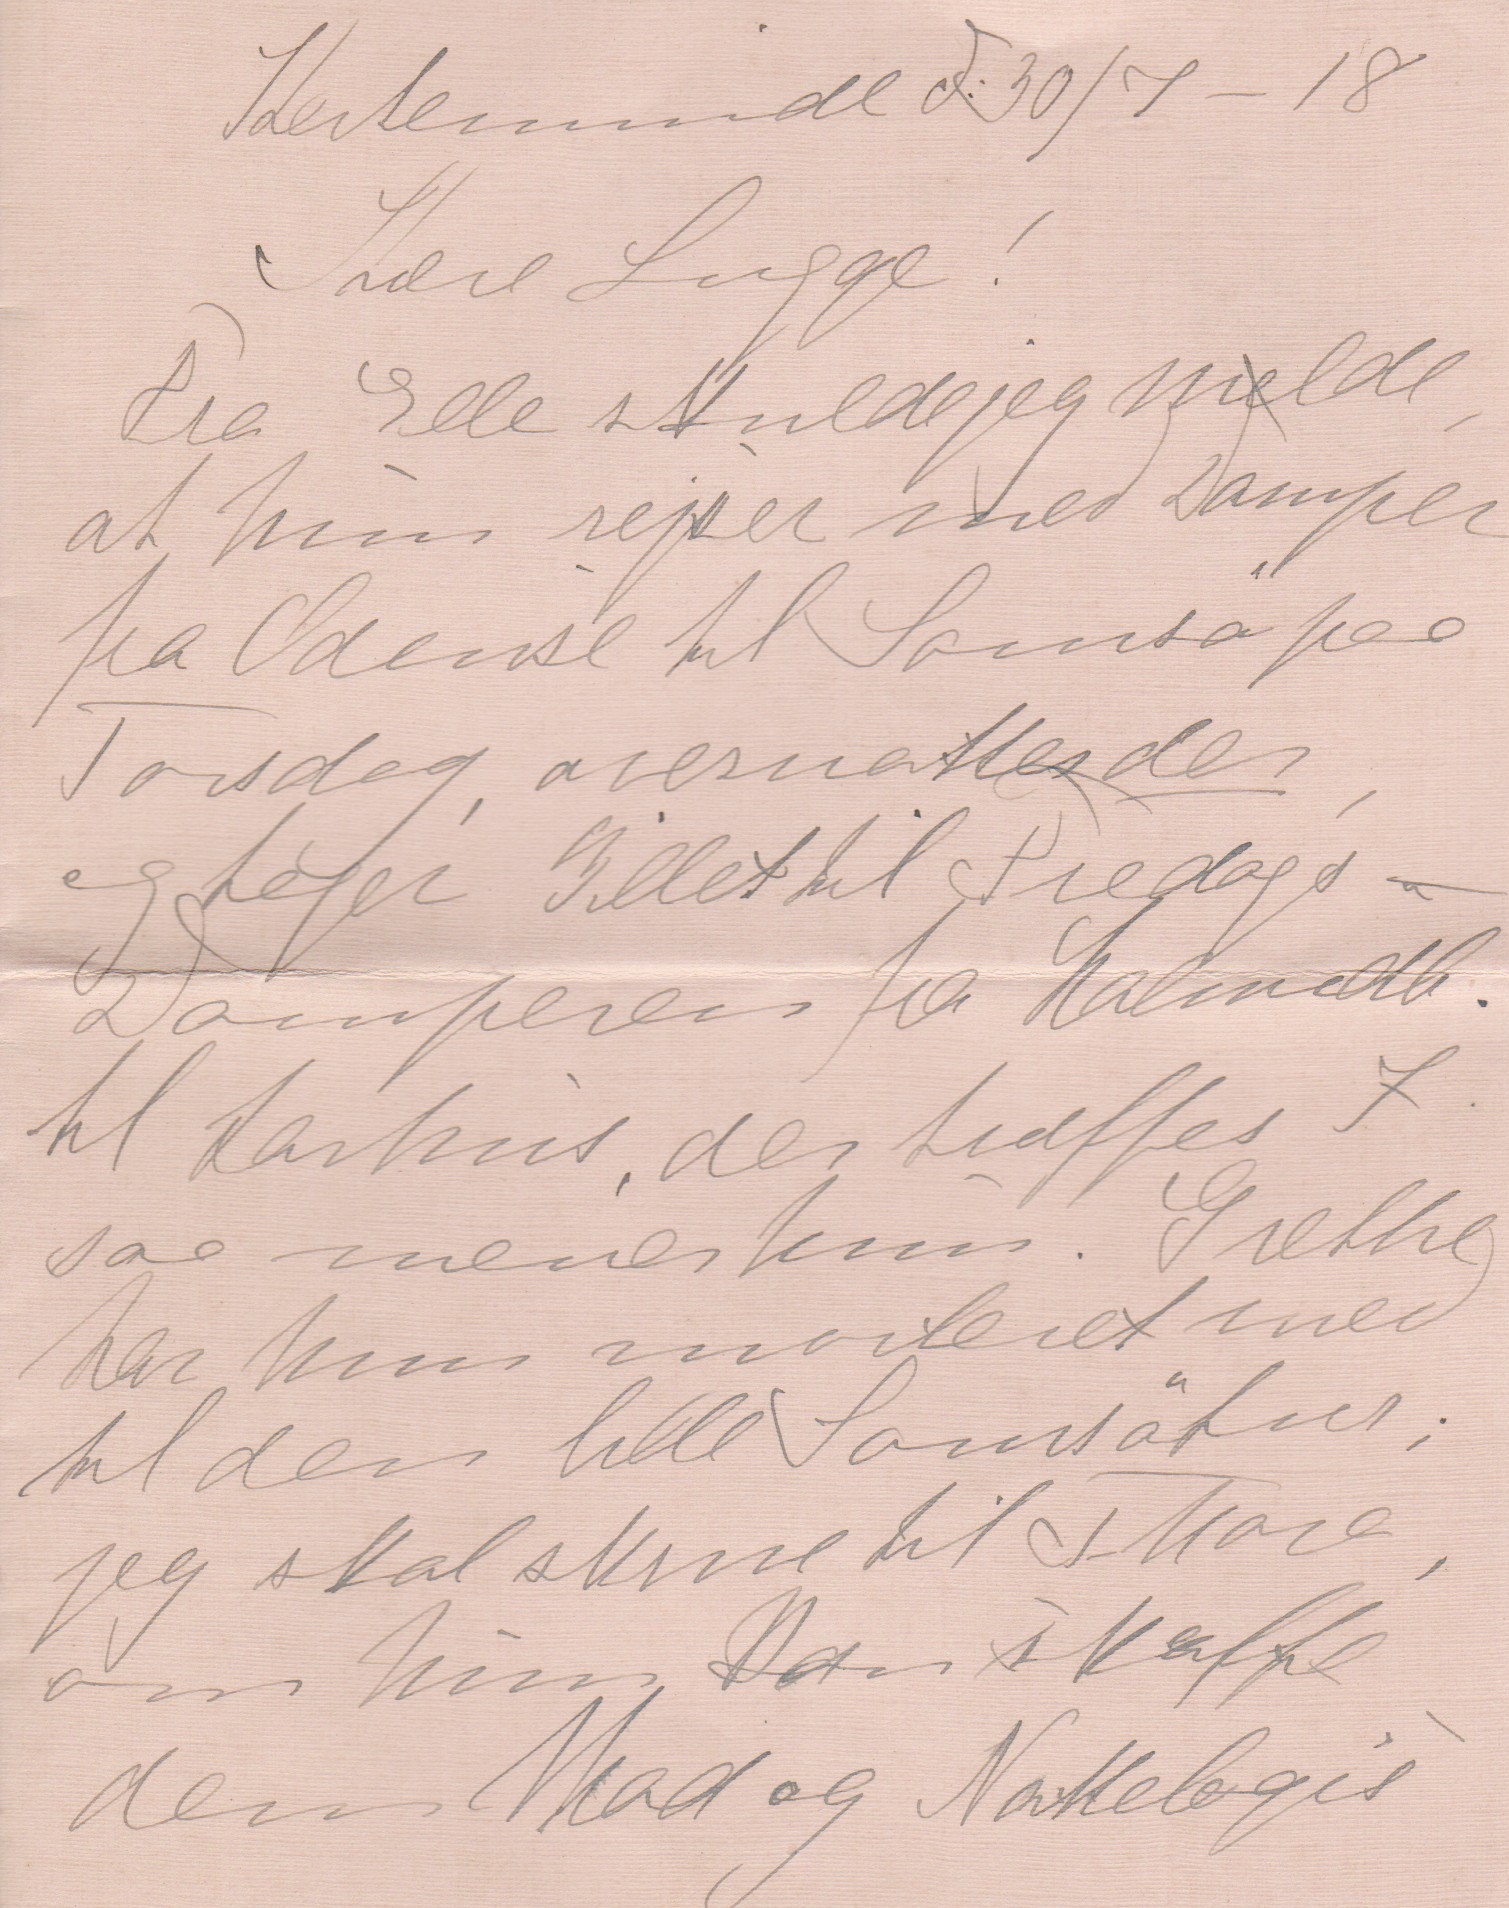 Kerteminde d: 30/7 – 18
Kære Lugge!
Fra Elle skulde jeg melde,
at hun rejser med Damper
fra Odense til Samsö paa
Torsdag, overnatter der,
og tager Billet til Fredags-
Damperen fra Kalundb.
til Aarhus, der træffes I
saa mener hun. Grethe
har hun inviteret med
til den lille Samsötur;
jeg skal skrive til Thora,
om hun kan skaffe
dem Mad og Nattelogis